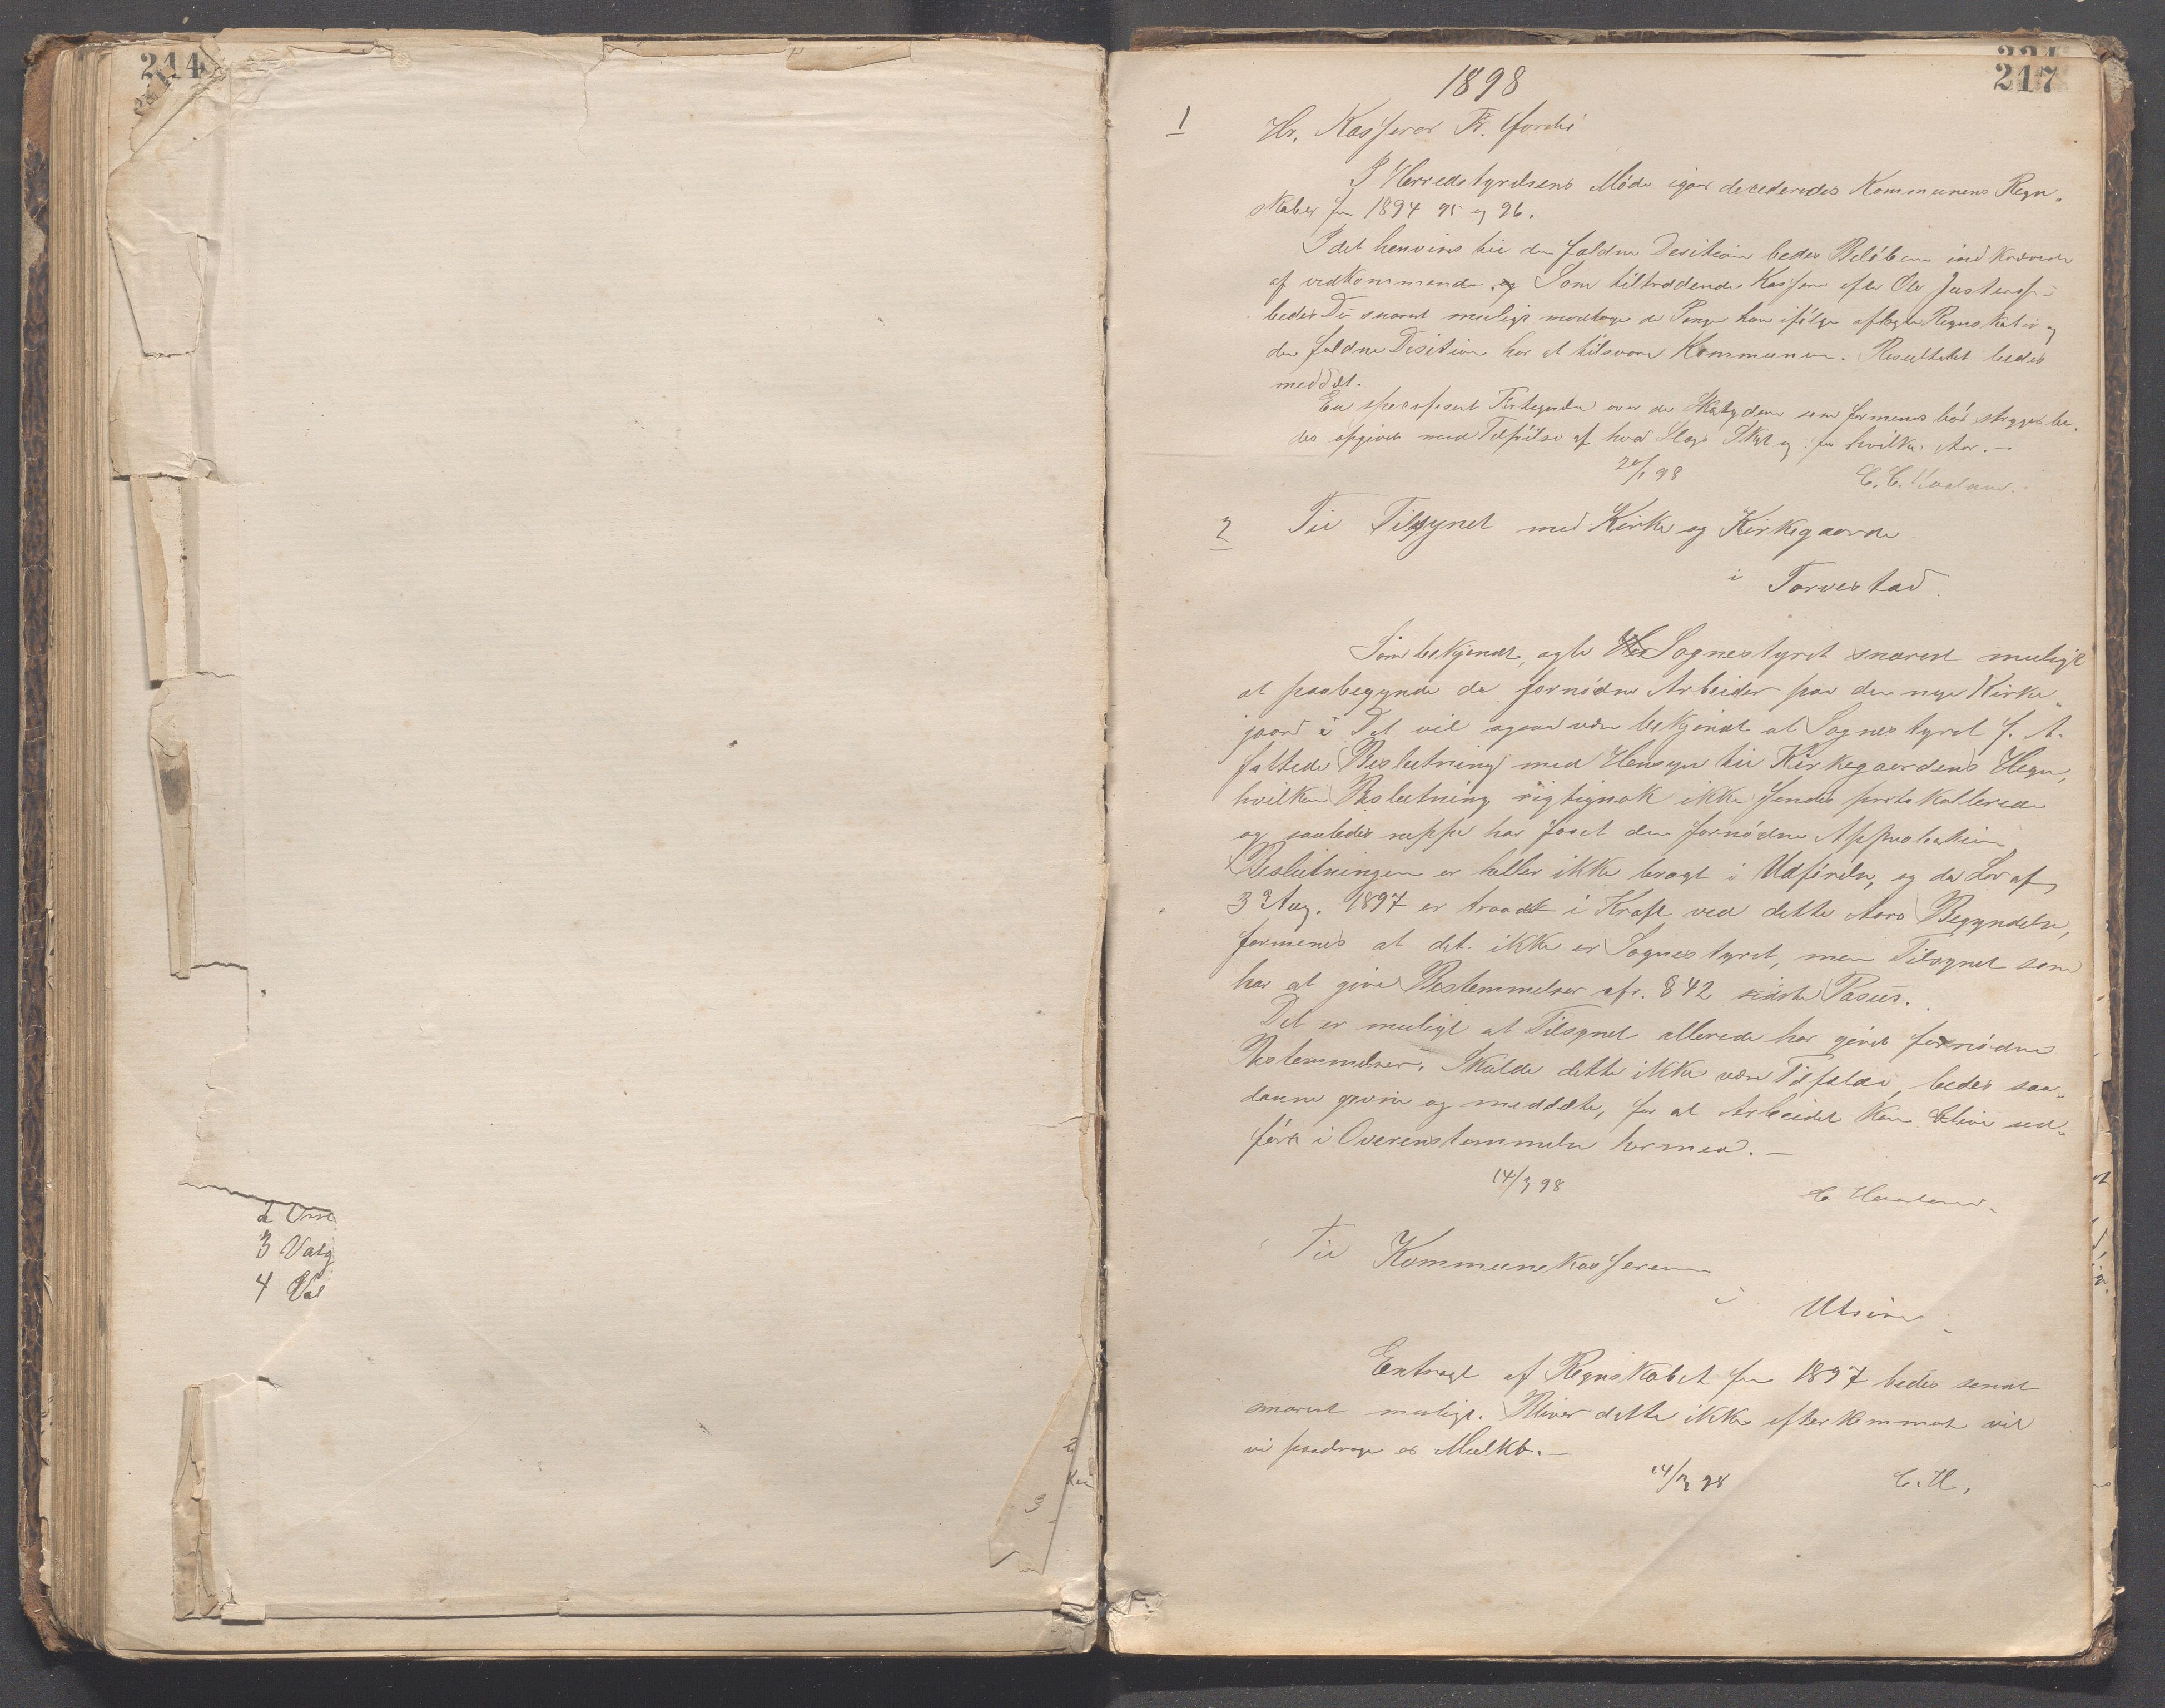 214
3 Valg
4 Val
3
217
1898
1 Hr. Kasserer
I Herredstyrelsens Møde igaar decideredes Kommunens Regn-
skaber for 1894 95 og 96.
Idet henvises til den faldne Desition bedes Beløbene indkrævede
af vedkommende. Som tiltrædende Kasserer efter Ole
bedes De snarest muligt modtage de Penge han ifølge aflagte Regnskaber og
den faldne Desition har at tilsvare Kommunen. Resultatet bedes
meddelt.
En specifisert Fortegnelse over de Skatydere som formenes bør stryges be-
des opgivet med Tilføielse af hvad Slags Skat og for hvilke Aar. –
20/1 98 C. C.
2 Til Tilsynet med Kirke og Kirkegaarde
i Torvestad.
Som bekjendt, agter Sognestyret snarest muligt
at paabegynde de fornødne Arbeider paa den nye Kirke-
gaard. Det vil ogsaa være bekjendt at Sognestyret f. A.
fattede Beslutning med Hensyn til Kirkegaardens Hegn,
hvilken Beslutning rigtignok ikke findes protokolleret
og saaledes neppe har faaet den fornødne Approbation
Beslutningen er heller ikke bragt i Udførelse, og da Lov af
3 Aug. 1897 er traadt i Kraft ved dette Aars Begyndelse,
formenes at det ikke er Sognestyret, men Tilsynet som
har at give Bestemmelser cfr. § 42 sidste Passus.
Det er muligt at Tilsynet allerede har givet fornødne
Bestemmelser. Skulde dette ikke være Tilfælde, bedes saa-
danne givne og meddelte, for at Arbeidet kan blive ud-
ført i Overenstemmelse hermed. –
14/3 98 C
Til Kommunekassereren
i Utsire
Extragt af Regnskabet for 1897 bedes sendt
snarest muligt. Bliver dette ikke efterkommet vil
vi paadrage os Mulkt. –
14/3 98 C. H.